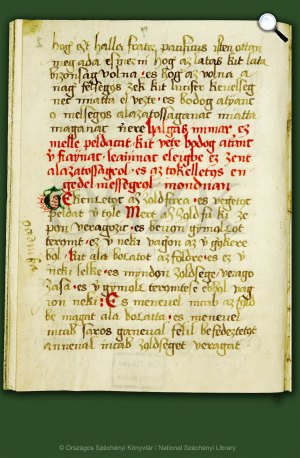 hog ezt halla frater pacificus isten ottan
meg ada esmerni hog az latas kit lata
bizonsag volna · es hog az volna a
nag felseges zek kit lucifer keuelseg
nec miatta el vezte · es bodog atyanc
o melseges alazatossaganac miatta
maganac nere Halgass immar, ez
melle peldatat kit vete bodog atanc
y fiaynac · leaiinac eleigbe ez zent
alazatossagrol · es az tokelletes en
gedelmessegrol · mondnan
Tekenletoc az zoldfarea · es vegetoc
peldat y tole Mert az zoldfa ki ze
pon veragozic · es bevon gymolcot
teromt · ez y neki vagon az y gokere
bol Kit ala bocatot az foldre · es ez y
neki lelke · es myndon zoldsege verago
zasa · es y gymolc teromtese ebbol vag
on neki · Es meneuel incab az fold
be magat ala bocatta · es meneuel
incab saros ganeual fellil befedeztetot
anneual incab zoldseget veragat
© Országos Széchényi Könyvtár / National Széchényi Library